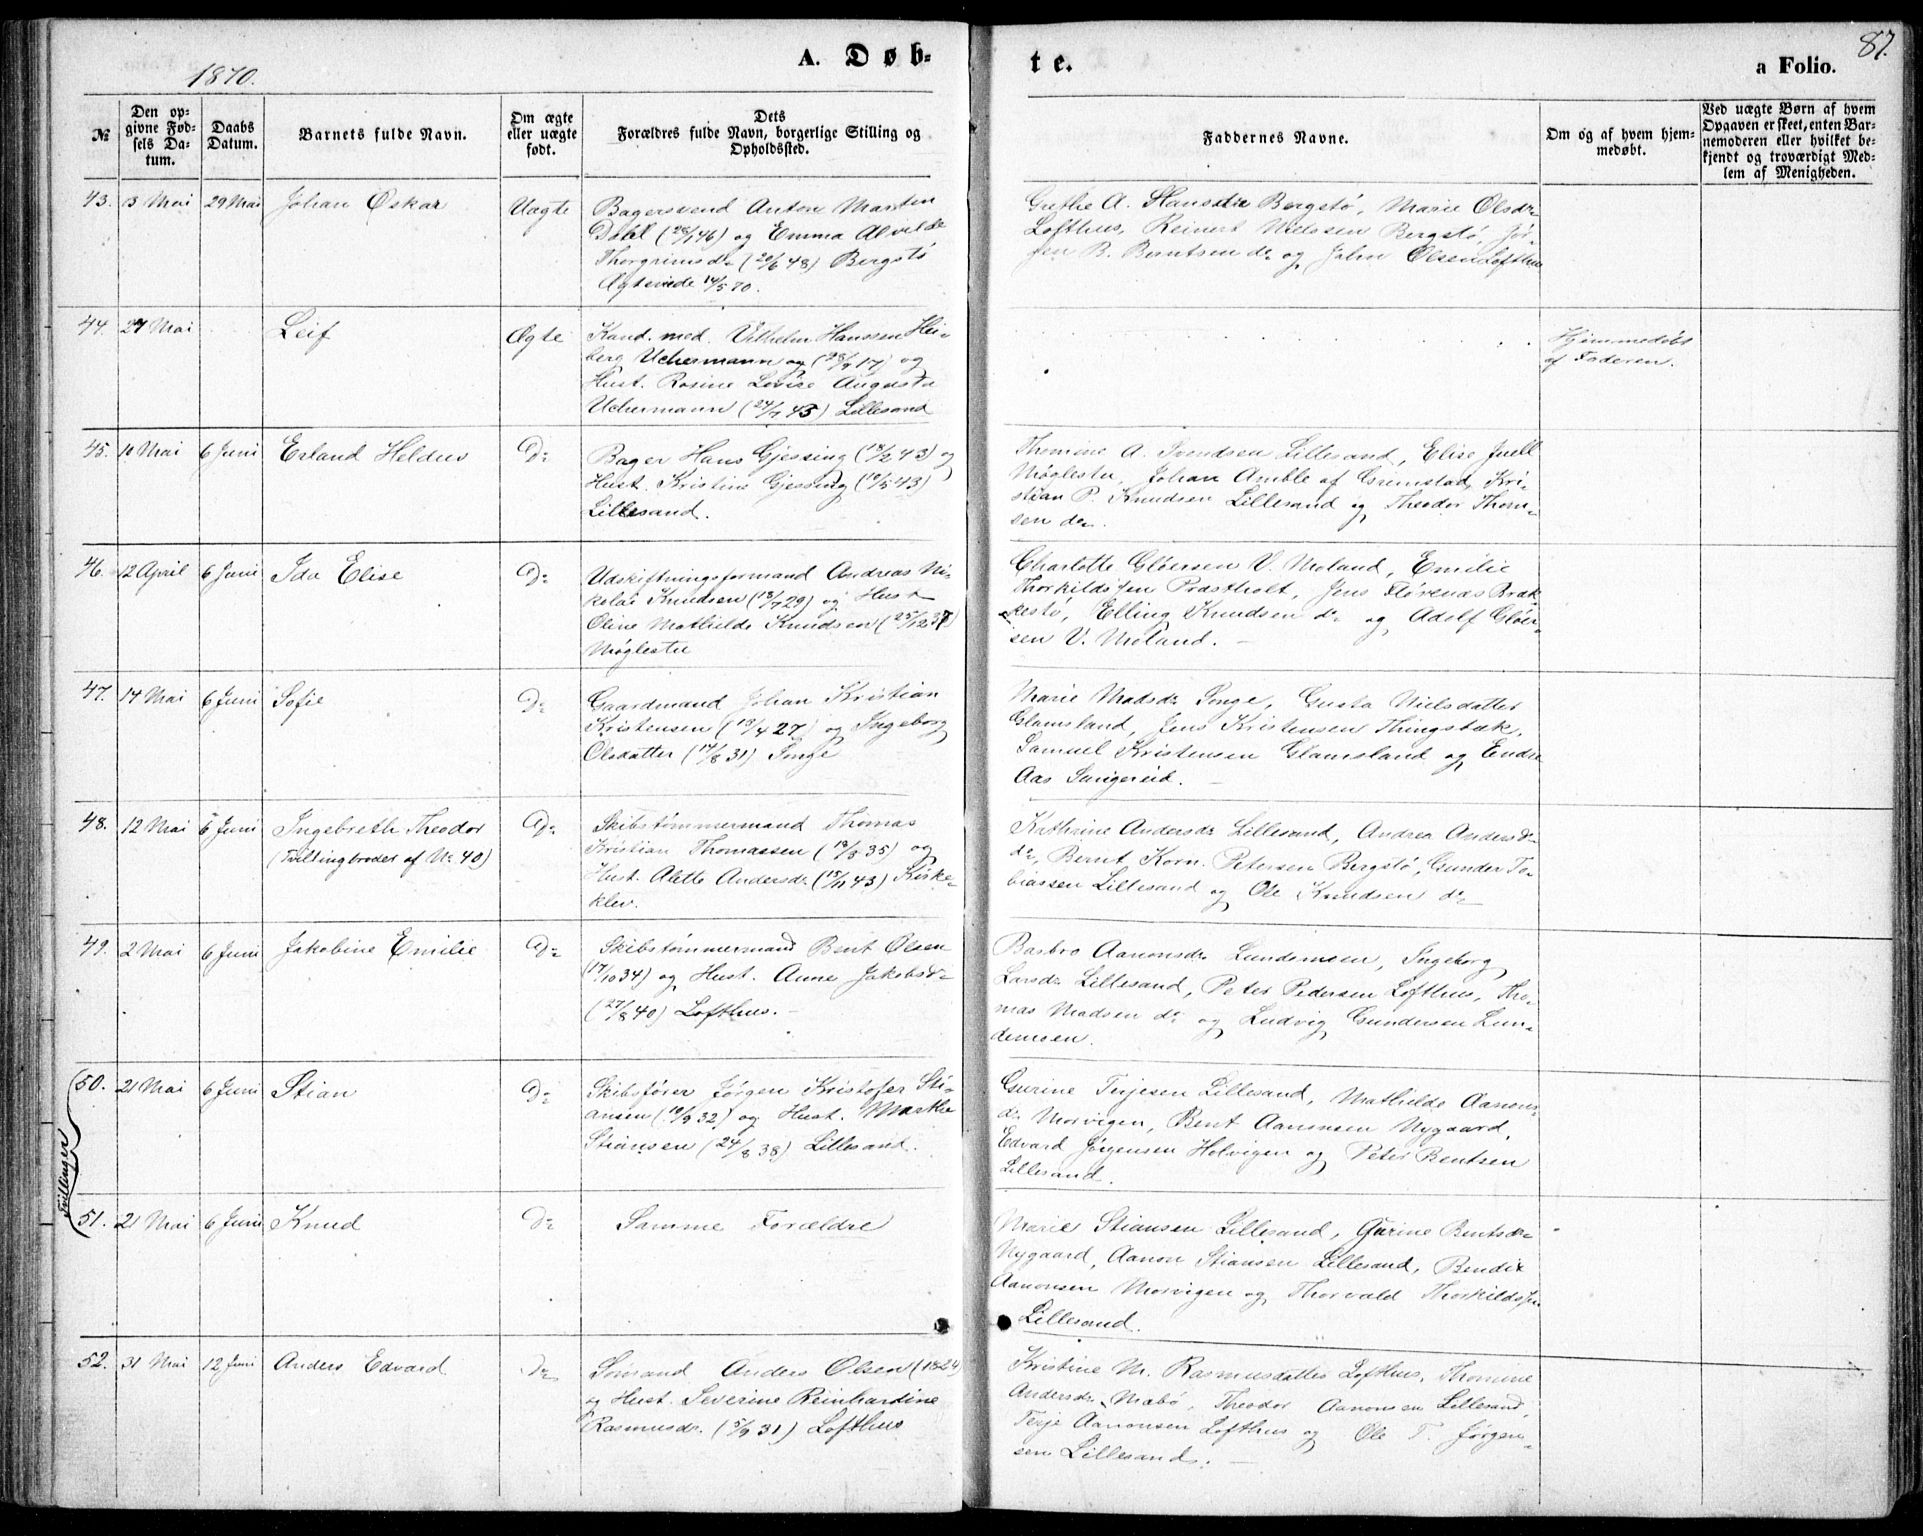 1870.
A. Døb-
te.
a Folio.
87.
№
Den op-
givne Fød-
sels Da-
tum.
Daabs
Datum.
Barnets fulde Navn.
Om ægte
eller uægte
født.
Dets
Forældres fulde Navn, borgerlige Stilling og
Opholdssted.
Faddernes Navne.
Om og af hvem hjem-
medøbt.
Ved uægte Børn af hvem
Opgaven er skeet, enten Bar-
nemoderen eller hvilket be-
kjendt og troværdigt Med-
lem af Menigheden.
43. 3 Mai 29 Mai Johan Oskar Uægte
Bagersvend Anton Marten
Dahl (28/1 46) og Emma Alvilde
Thorgrimsdr (20/6 48) Bergstø
14/5 70.
Grethe A. Hansdtr Bergstø, Marie Olsdr
Lofthus, Reinert Nielssen Bergstø, Jør-
gen B. Berntsen do og John Olsen Lofthus
44. 27 Mai Leif Ægte
Kand. med. Vilhelm Hanssen Hei-
berg Uchermann og (28/7 17) og
Hust. Rosine Lovise Augusta
Uchermann (24/7 43) Lillesand
Hjemmedøbt
af Faderen.
45. 10 Mai 6 Juni Erland Heldus Do
Bager Hans Gjessing (18/2 43) og
Hust. Kristine Gjessing (19/5 43)
Lillesand.
Thomine A. Svendsen Lillesand, Elise Juell
Møglestu, Johan Amble af Grimstad, Kri-
stian P. Knudsen Lillesand og Theodor Thom-
sen do.
46. 12 April 6 Juni Ida Elise Do
Udskiftningsformand Andreas Ni-
kolai Knudsen (18/7 29) og Hust
Oline Mathilde Knudsen (25/12 37)
Møglestu
Charlotte Gløersen V. Moland, Emilie
Thorkildsen Præstholt, Jens Flørenæs Bræk-
kestø, Elling Knudsen do og Adolf Gløer-
sen V. Moland. —
47. 14 Mai 6 Juni Sofie Do
Gaardmand Johan Kristian
Kristensen (19/4 27) og Ingeborg
Olsdatter (17/8 31) Songe
Marie Madsdr Songe, Gusta Nielsdatter
Glamsland, Jens Kristensen Thingsbæk,
Samuel Kristensen Glamsland og Endre
Aas Sangereid. —
48. 12 Mai 6 Juni Ingebreth Theodor Do
(Tvillingbroder af No 40)
Skibstømmermand Thomas
Kristian Thomassen (19/3 35) og
Hust. Alette Andersdr (15/11 43) Kirke-
klev.
Kathrine Andersdr Lillesand, Andrea Andersdr
do, Bernt Korn. Petersen Bergstø, Gunder To-
biassen Lillesand og Ole Knudsen do
49. 2 Mai 6 Juni Jakobine Emilie Do
Skibstømmermand Bent Olsen
(17/10 34) og Hust. Anne Jakobsdr
(27/8 40) Lofthus. —
Basbro Aanonsdr Lundemoen, Ingeborg
Larsdr Lillesand, Peter Pedersen Lofthus, Tho-
mas Madsen do og Ludvig Gundersen Lun-
demoen.
Tvillinger
50. 21 Mai 6 Juni Stian Do
Skibsfører Jørgen Kristofer Sti-
ansen (19/9 32) og Hust. Marthe
Stiansen (24/8 38) Lillesand.
Gurine Terjesen Lillesand, Mathilde Aanons-
dr Morvigen, Bent Aanonsen Nygaard,
Edvard Jørgensen Holvigen og Peter Bentsen
Lillesand.
51. 21 Mai 6 Juni Knud Do
Samme Forældre
Marie Stiansen Lillesand, Gurine Bentsdr
Nygaard, Aanon Stiansen Lillesand, Bendix
Aanonsen Morvigen og Thorvald Thorkildsen
Lillesand.
52. 31 Mai 12 Juni Anders Edvard Do
Sømand Anders Olsen (1824)
og Hust. Severine Reinhardine
Rasmusdr. (5/9 31) Lofthus
Kristine M. Rasmusdatter Lofthus, Thomine
Andersdr Mabø, Theodor Aanonsen Lillesand,
Terje Aanonsen Lofthus og Ole T. Jørgen-
sen Lillesand. —